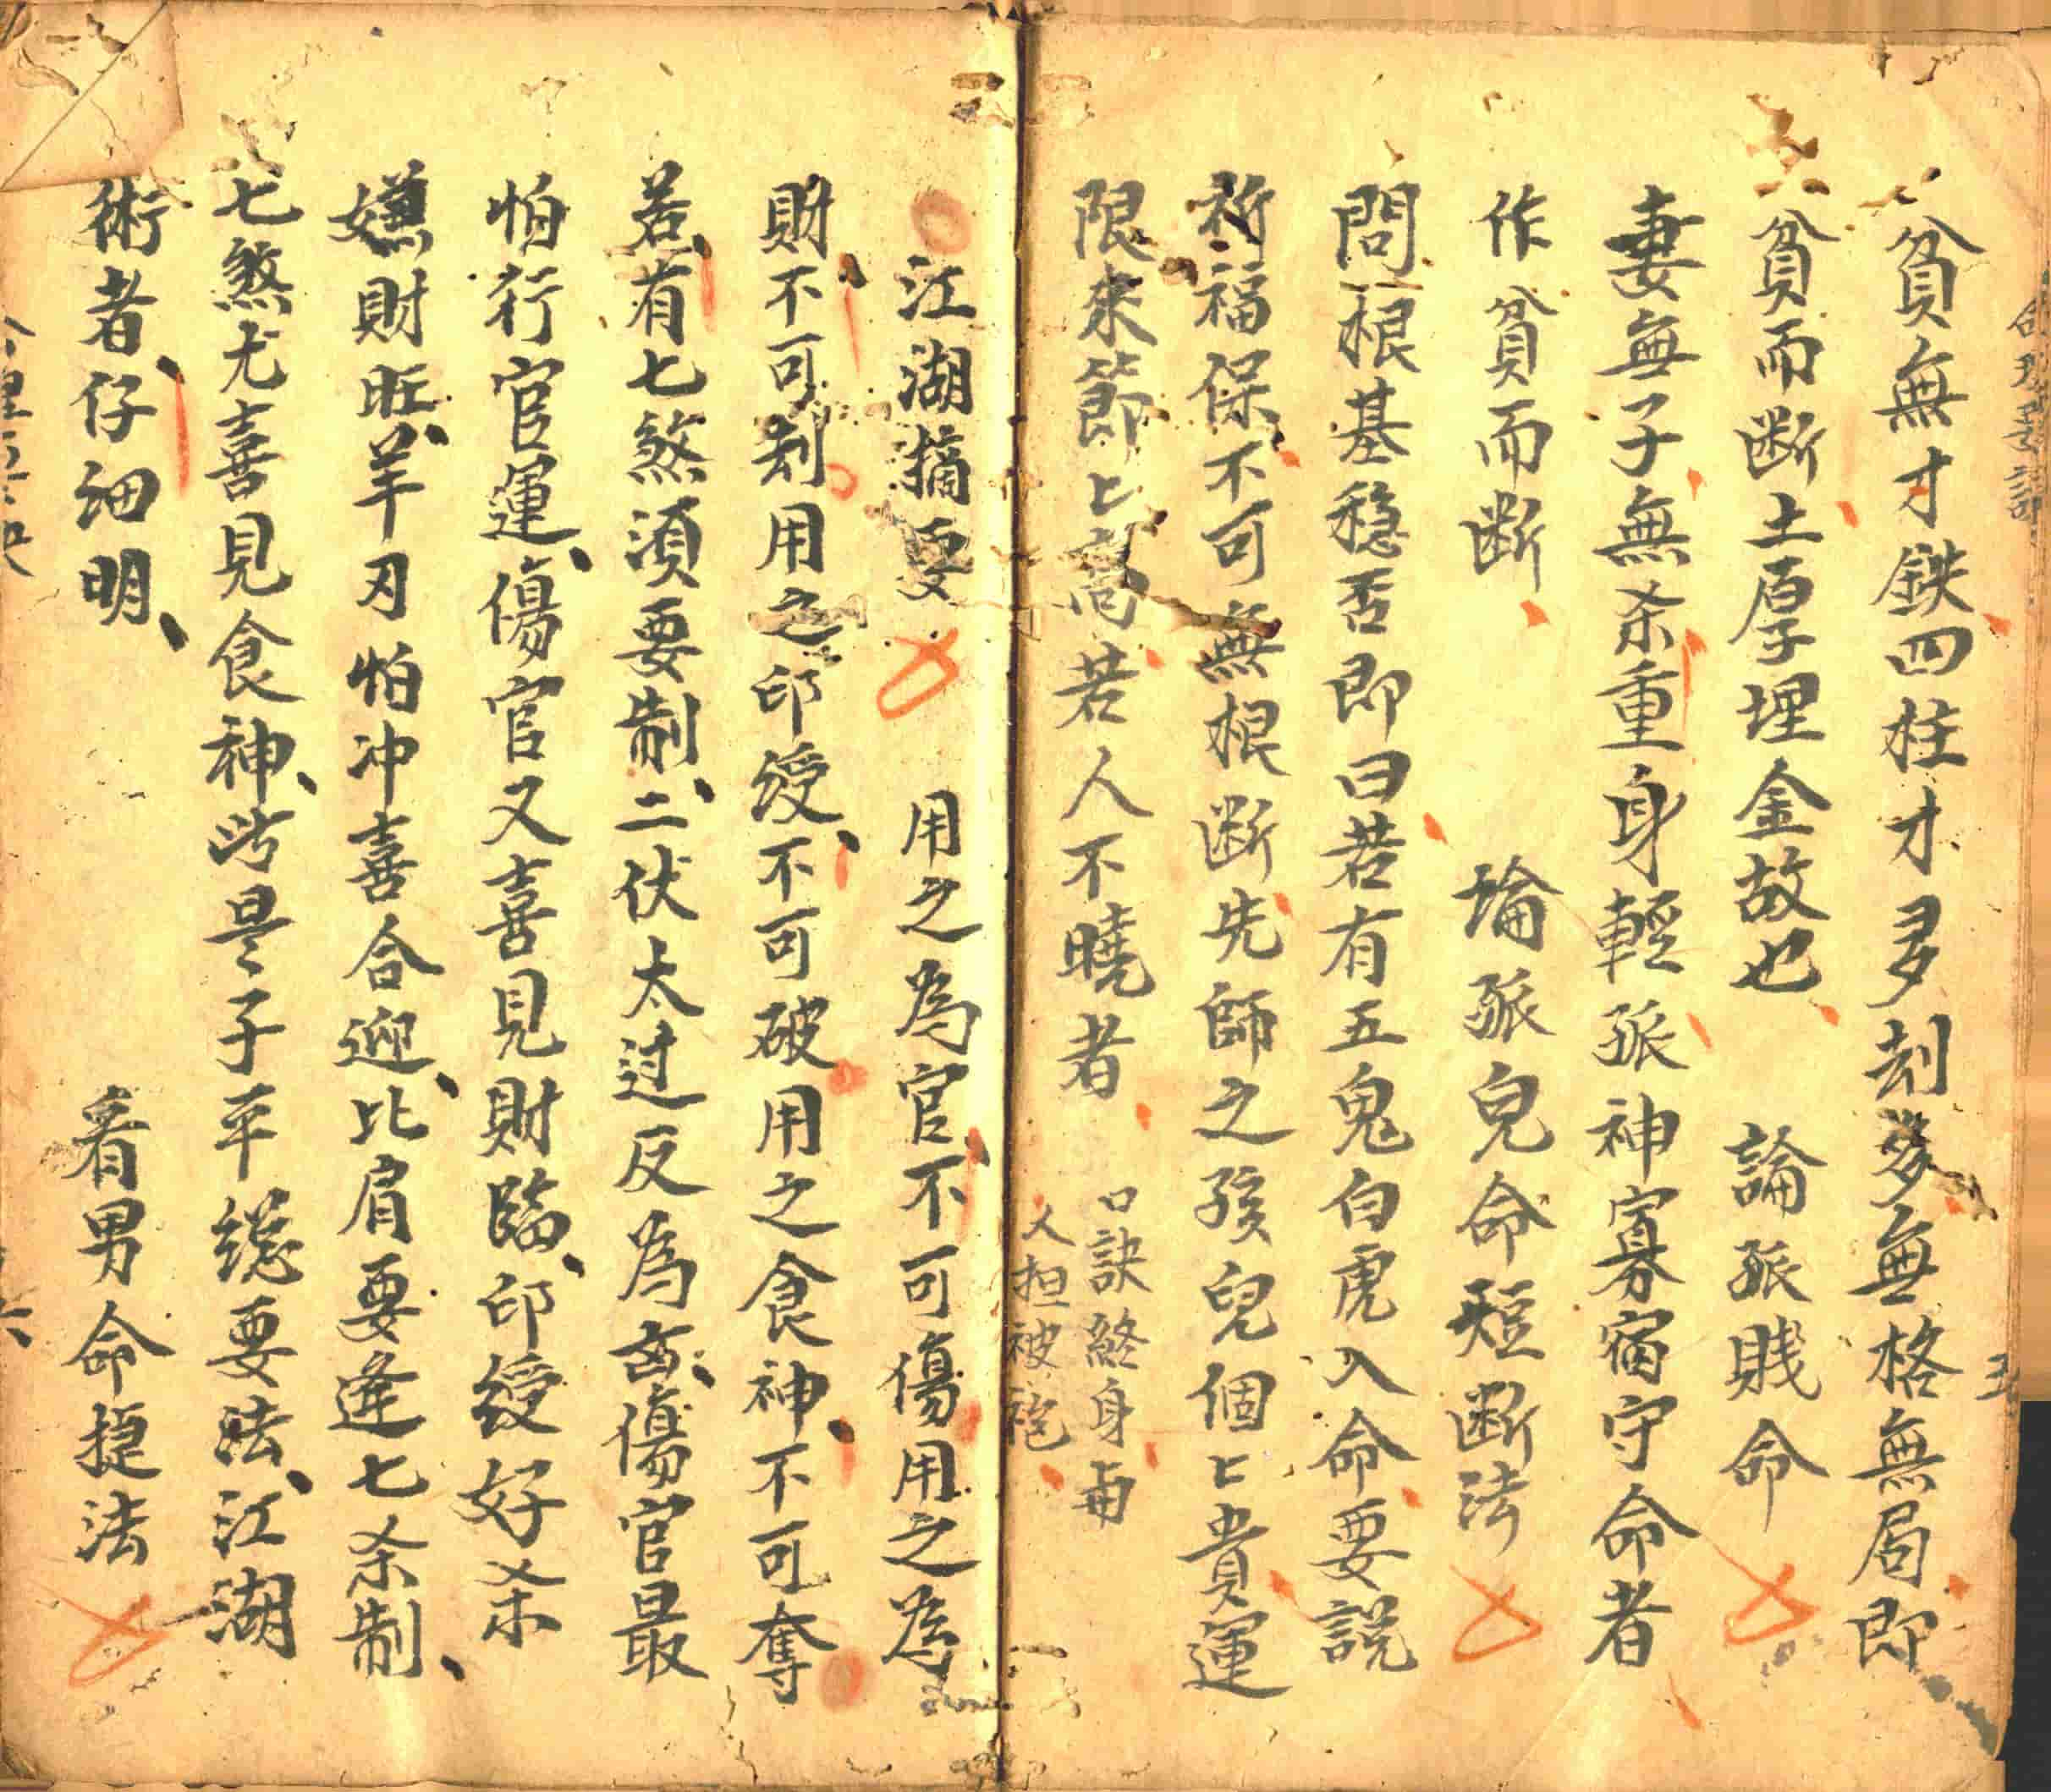 貧無才鉄四柱才多刦多無格無局即
貧而断土厚埋金故也 論孤賤命
妻無子無杀重身輕孤神寡宿守命者
作貧而断 論孤皃命短断法
問根基稳否即曰若有五鬼白虎入命要説
祈福保不可無根断先師之孩兒個〻貴運
限來節〻高若人不曉者
口訣終身
江湖摘要 用之為官不可傷用之為
財不可刦用之印綬不可破用之食神不可奪
若有七煞須要制二伏太过反為凶傷官最
怕行官運傷官又喜見財臨印綬好杀
嫌財旺羊刃怕冲喜合迎比肩要逢七杀制
七煞尤喜見食神此是子平總要法江湖
術者仔细明 看男命捷法
五
六